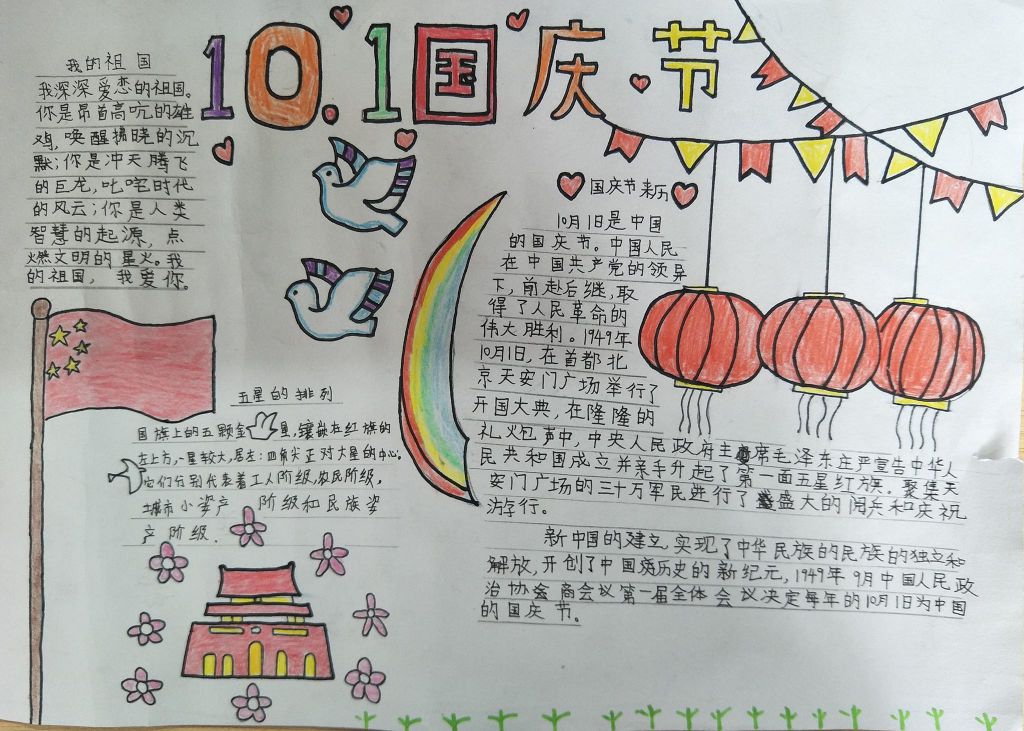 10.1国庆节
我的祖国
我深深爱恋的祖国。
你是昂首高吭的雄
鸡,唤醒拂晓的沉
默;你是冲天腾飞
的巨龙,叱咤时代
的风云;你是人类
智慧的起源,点
燃文明的星火。我
的祖国,我爱你。
五星的排列
国旗上的五颗金星,镶嵌在红旗的
左上方,一星较大,居左:四角尖正对大星的中心。
它们分别代表着工人阶级,农民阶级,
城市小资产阶级和民族资
产阶级.
国庆节来历
10月1日是中国
的国庆节。中国人民
在中国共产党的领导
下,前赴后继,取
得了人民革命的
伟大胜利。1949年
10月1日,在首都北
京天安门广场举行了
开国大典,在隆隆的
礼炮声中,中央人民政府主席毛泽东庄严宣告中华人
民共和国成立并亲手升起了第一面五星红旗.聚集天
安门广场的三十万军民进行了盛大的阅兵和庆祝
游行。
新中国的建立,实现了中华民族的民族的独立和
解放,开创了中国历史的新纪元,1949年9月中国人民政
治协会商会议第一届全体会议决定每年的10月1日为中国
的国庆节。